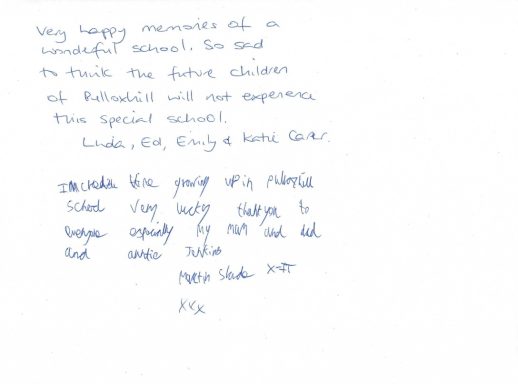 Very happy memories of a
wonderful school. So sad
to think the future children
of Pulloxhill will not experience
this special school.
Linda, Ed, Emily & Katie Carer.
time growing up in Pulloxhill
School very lucky thank you to
everyone especially my mum and dad
and auntie Junkins
Martin Slade
xxx